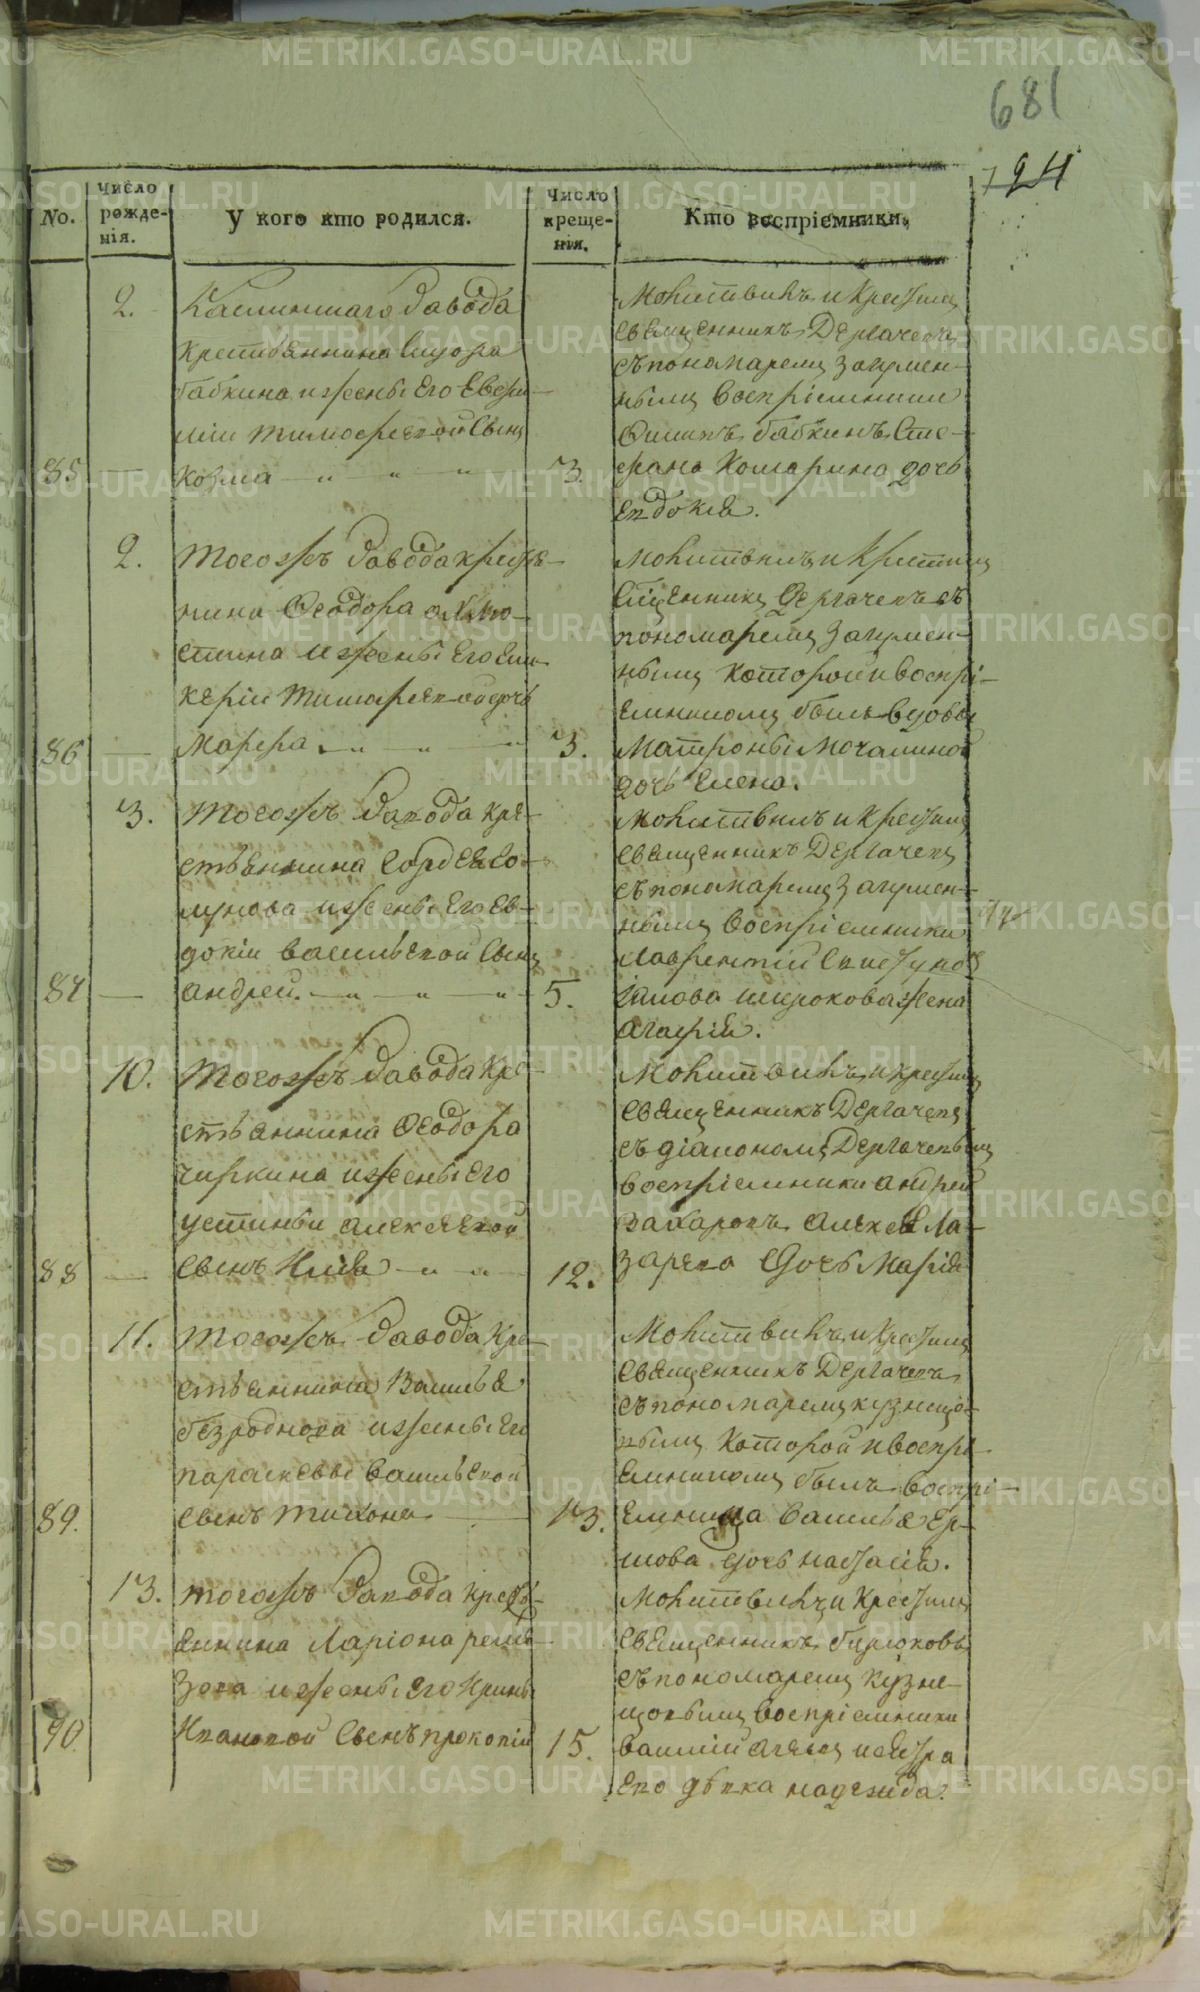 681
724
No.
Число рожденія.
У кого кто родился.
Число крещенія.
Кто воспріемники.
2.
Каслинскаго завода
крестьянина
бабкина и жены его
сынъ
85
Козма
3.
Молитвилъ и крестилъ
священникъ Дергачевъ
съ пономаремъ Загумен-
нымъ воспріемники
бабкинъ Сте-
фана Комарина дочь
Евдокія.
2.
Тогожъ завода кресть-
нина Ѳеодора
и жены его Гли-
керіи дочь
86
Марѳа
3.
Молитвилъ и крестилъ
Сщенникъ Дергачевъ съ
пономаремъ Загумен-
нымъ которой и воспрі-
емникомъ былъ вдовы
Матроны Мочалиной
дочь Елена.
3.
Тогожъ завода кре-
стьянина
и жены его Ев-
докіи Васильевой сынъ
87
андрей.
5.
Молитвилъ и крестилъ
священникъ Дергачевъ
съ пономаремъ Загумен-
нымъ воспріемники
Лаврентій
Іакова широкова жена
Агафія.
10.
Тогожъ завода кре-
стьянина Ѳеодора
чиркина и жены его
устиньи алексеевой
88
сынъ Илія
12.
Молитвилъ и крестилъ
священникъ Дергачевъ
съ діакономъ Дергачевымъ
воспріемники андрей
Захаровъ алексея Ла-
зарева дочь Марія
11.
Тогожъ завода кре-
стьянина Василья
безроднова и жены его
параскевы васильевой
89.
сынъ Тихонъ
13.
Молитвилъ и крестилъ
священникъ Дергачевъ
съ пономаремъ кузнецо-
вымъ которой и воспрі-
емникомъ былъ воспрі-
емница Василья Ер-
шова дочь настасія.
13.
тогожъ завода кресть-
янина Ларіона
и жены его Ирины
90.
Ивановой сынъ прокопій
15.
Молитвилъ и крестилъ
священникъ бирюковъ
съ пономаремъ Кузне-
цовымъ воспріемники
василій и сестра
его дѣвка надежда.
METRIKI.GASO-URAL.RU